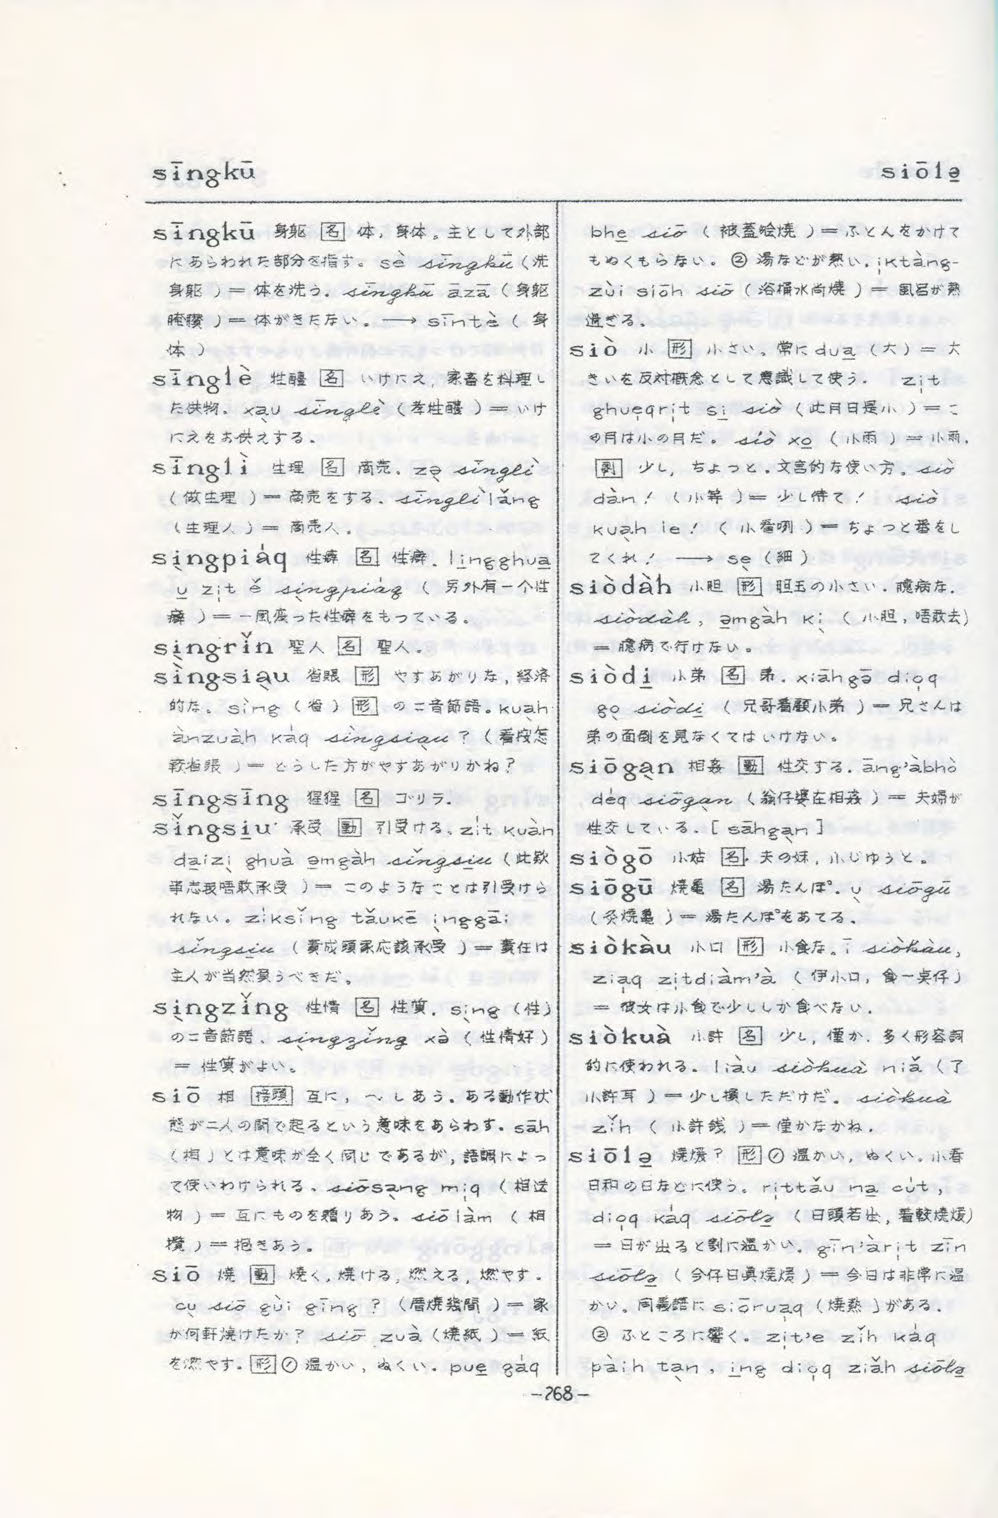 sīngkū
siōlə̱
sīngkū 身躯 [名] 体，身体。主として外部
にあらわれた部分を指す。sè sīngkū (洗
身躯) = 体を洗う。sīngkū āzā (身躯
腌臢) = 体がきたない。 ⟶ sīntè (身
体)
sīnglè 牲醴 [名] いけにえ，家畜を料理し
た供物。xa̱u sīnglè (孝牲醴) = いけ
にえをお供えする。
sīnglì 生理 [名] 商売。zə̱ sīnglì
(做生理) = 商売をする。sīnglìlǎng
(生理人) = 商売人。
si̱ngpiȧq 性癖 [名] 性癖。li̱ngghua̱
u̱ zi̍t ě si̱ngpiȧq (另外有一个性
癖) = 一風変った性癖をもっている。
si̱ngrǐn 聖人 [名] 聖人。
sìngsia̱u 省賬 [形] やすあがりな，経済
的な。sìng (省) [形] の二音節語。kuàh
ànzuàh kȧq sìngsia̱u ? (看按怎
較省賬) = どうした方がやすあがりかね？
sīngsīng 猩猩 [名] ゴリラ。
sǐngsiu̱ 承受 [動] 引受ける。zi̍t kuàn
da̱izi̱ ghuà əmgàh sǐngsiu̱ (此款
事志我唔敢承受) = このようなことは引受けら
れない。zi̍ksǐng tǎukē i̱nggāi
sǐngsiu̱ (責成頭家応該承受) = 責任は
主人が当然負うべきだ。
si̱ngzǐng 性情 [名] 性質。si̱ng (性)
の二音節語。si̱ngzǐng xà (性情好)
= 性質がよい。
siō 相 [接頭] 互に，～しあう。ある動作状
態が二人の間で起るという意味をあらわす。sāh
(相) とは意味が全く同じであるが，語調によっ
て使いわけられる。siōsa̱ng mi̍q (相送
物) = 互にものを贈りあう。siōlàm (相
攬) = 抱きあう。
siō 焼 [動] 焼く，焼ける，燃える，燃やす。
cu̱ siō gùi gīng ? (厝焼幾間) = 家
が何軒焼けたか？ siō zuà (焼紙) = 紙
を燃やす。[形] ① 温かい，ぬくい。pue̱ gȧq
bhe̱ siō (被蓋𣍐焼) = ふとんをかけて
もぬくもらない。② 湯などが熱い。i̍ktàng-
zùi siōh siō (浴桶水尚焼) = 風呂が熱
過ぎる。
siò 小 [形] 小さい。常に dua̱ (大) = 大
きいを反対概念として意識して使う。zi̍t
ghue̍qri̍t si̱ siò (此月日是小) = こ
の月は小の月だ。siò xo̱ (小雨) = 小雨。
[副] 少し，ちょっと。文言的な使い方。siò
dàn ! (小等) = 少し待て！ siò
kua̱h le ! (小看咧) = ちょっと番をし
てくれ！ ⟶ se̱ (細)
siòdàh 小胆 [形] 胆玉の小さい。臆病な。
siòdàh, əmgàh ki̱ (小胆，唔敢去)
= 臆病で行けない。
siòdi̱ 小弟 [名] 弟。xiāhgō dio̍q
go̱ siòdi̱ (兄哥着顧小弟) = 兄さんは
弟の面倒を見なくてはいけない。
siōgan 相姦 [動] 性交する。āng'àbhò
deq siōgan (翁仔婆在相姦) = 夫婦が
性交している。[sāhgan]
siògō 小姑 [名] 夫の妹，小じゅうと。
siōgū 焼亀 [名] 湯たんぽ。u̱ siōgū
(焐焼亀) = 湯たんぽをあてる。
siòkàu 小口 [形] 小食な。ī siòkàu,
zia̍q zi̍tdiàm'à (伊小口，食一点仔)
= 彼女は小食で少ししか食べない。
siòkuà 小許 [名] 少し，僅か。多く形容詞
的に使われる。liàu siòkuà niǎ (了
小許耳) = 少し損しただけだ。siòkuà
zǐh (小許銭) = 僅かなかね。
siōlə̱ 焼煖？ [形] ① 温かい，ぬくい。小春
日和の日などに使う。ri̍ttǎu na̱ cu̍t,
dio̍q kȧq siōlə̱ (日頭若出，着較焼煖)
= 日が出ると割に温かい。gīn'àri̍t zīn
siōlə̱ (今仔日真焼煖) = 今日は非常に温
かい。同義語に siōrua̍q (焼熱) がある。
② ふところに響く。zi̍t'e zǐh kȧq
pàih tan, i̱ng dio̍q ziǎh siōlə̱
-268-